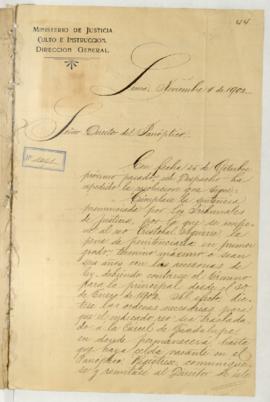 44
MINISTERIO DE JUSTICIA
CULTO E INSTRUCCIÓN.
DIRECCION GENERAL.
Lima, Noviembre 8 de 1902.
Señor Director del Panóptico.
Con fecha 25 de Octubre
próximo pasado, el Despacho ha
expedido la resolución que sigue:
Cúmplase la sentencia
pronunciada por los Tribunales
de justicia, por la que se impo
al reo Cristobal la
pena de penitenciaría en primer
grado, término máximo, ó sean
seis años con las accesorias de
ley, debiendo contarse el término
para la principal desde el 30
de Enero de 1902. Al efecto, díc
tese las órdenes necesarias para
que el indicado reo sea traslada
do á la Cárcel de Guadalupe
en donde permanecerá hasta
que haya celda vacante en el
Panóptico. Regístrese, comuníque
se y remítase al Director de este